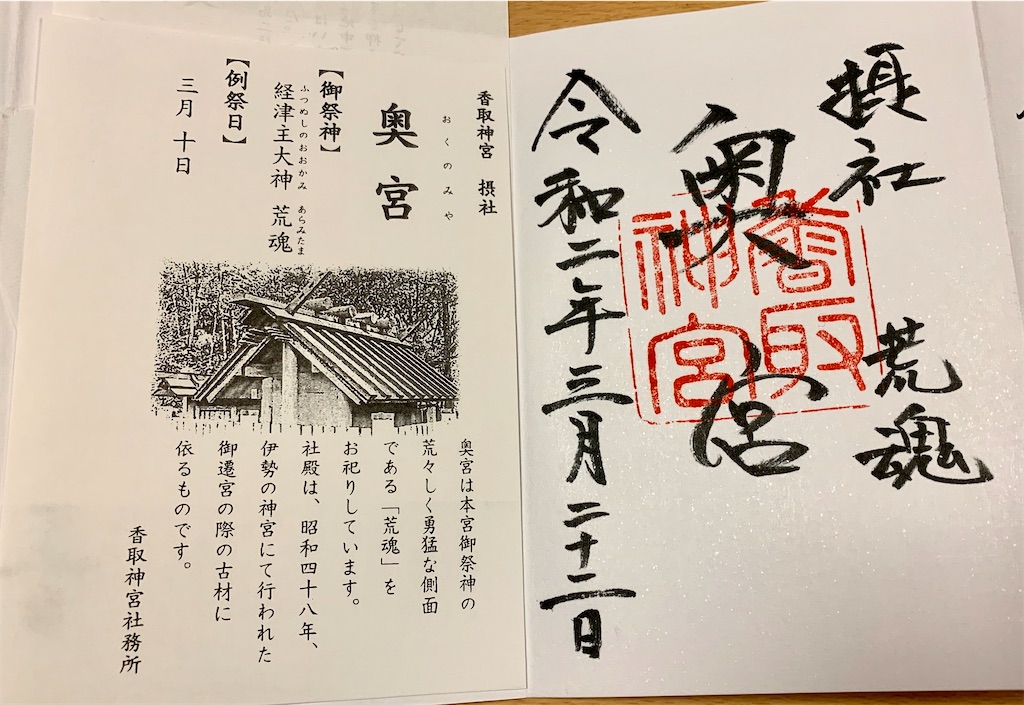 香取神宮 摂社
おくのみや
奥宮
【御祭神】
ふつぬしのおおかみ あらみたま
経津主大神 荒魂
【例祭日】
三月十日
奥宮は本宮御祭神の
荒々しく勇猛な側面
である「荒魂」を
お祀りしています。
社殿は、昭和四十八年、
伊勢の神宮にて行われた
御遷宮の際の古材に
依るものです。
香取神宮社務所
摂社 荒魂
奥宮
香取神宮
令和二年三月二十二日